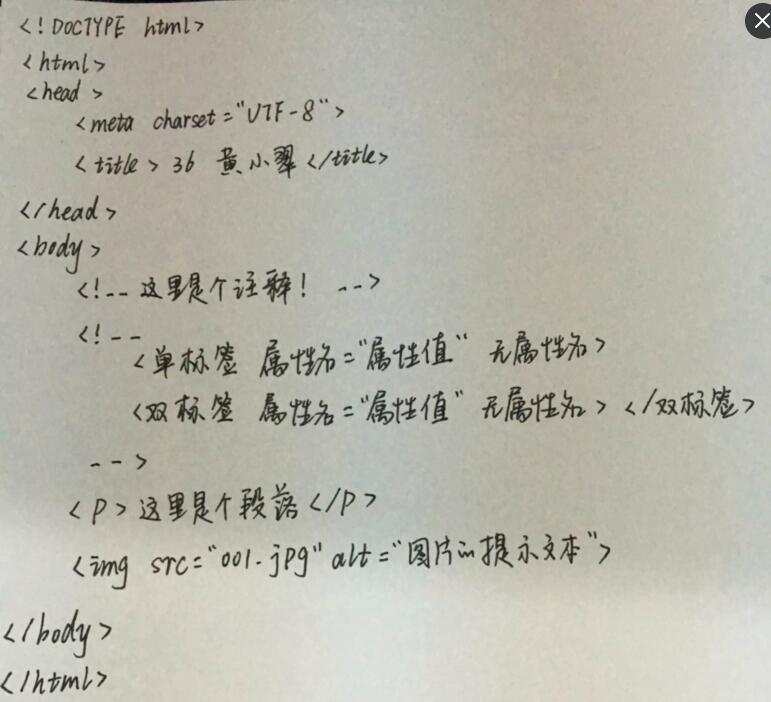 <!DOCTYPE html>
<html>
<head>
<meta charset="UTF-8">
<title>36 黄小翠</title>
</head>
<body>
<!-- 这里是个注释! -->
<!--
<单标签 属性名="属性值" 无属性名>
<双标签 属性名="属性值" 无属性名></双标签>
-->
<P>这里是个段落</P>
<img src="001.jpg" alt="图片的提示文本">
</body>
</html>